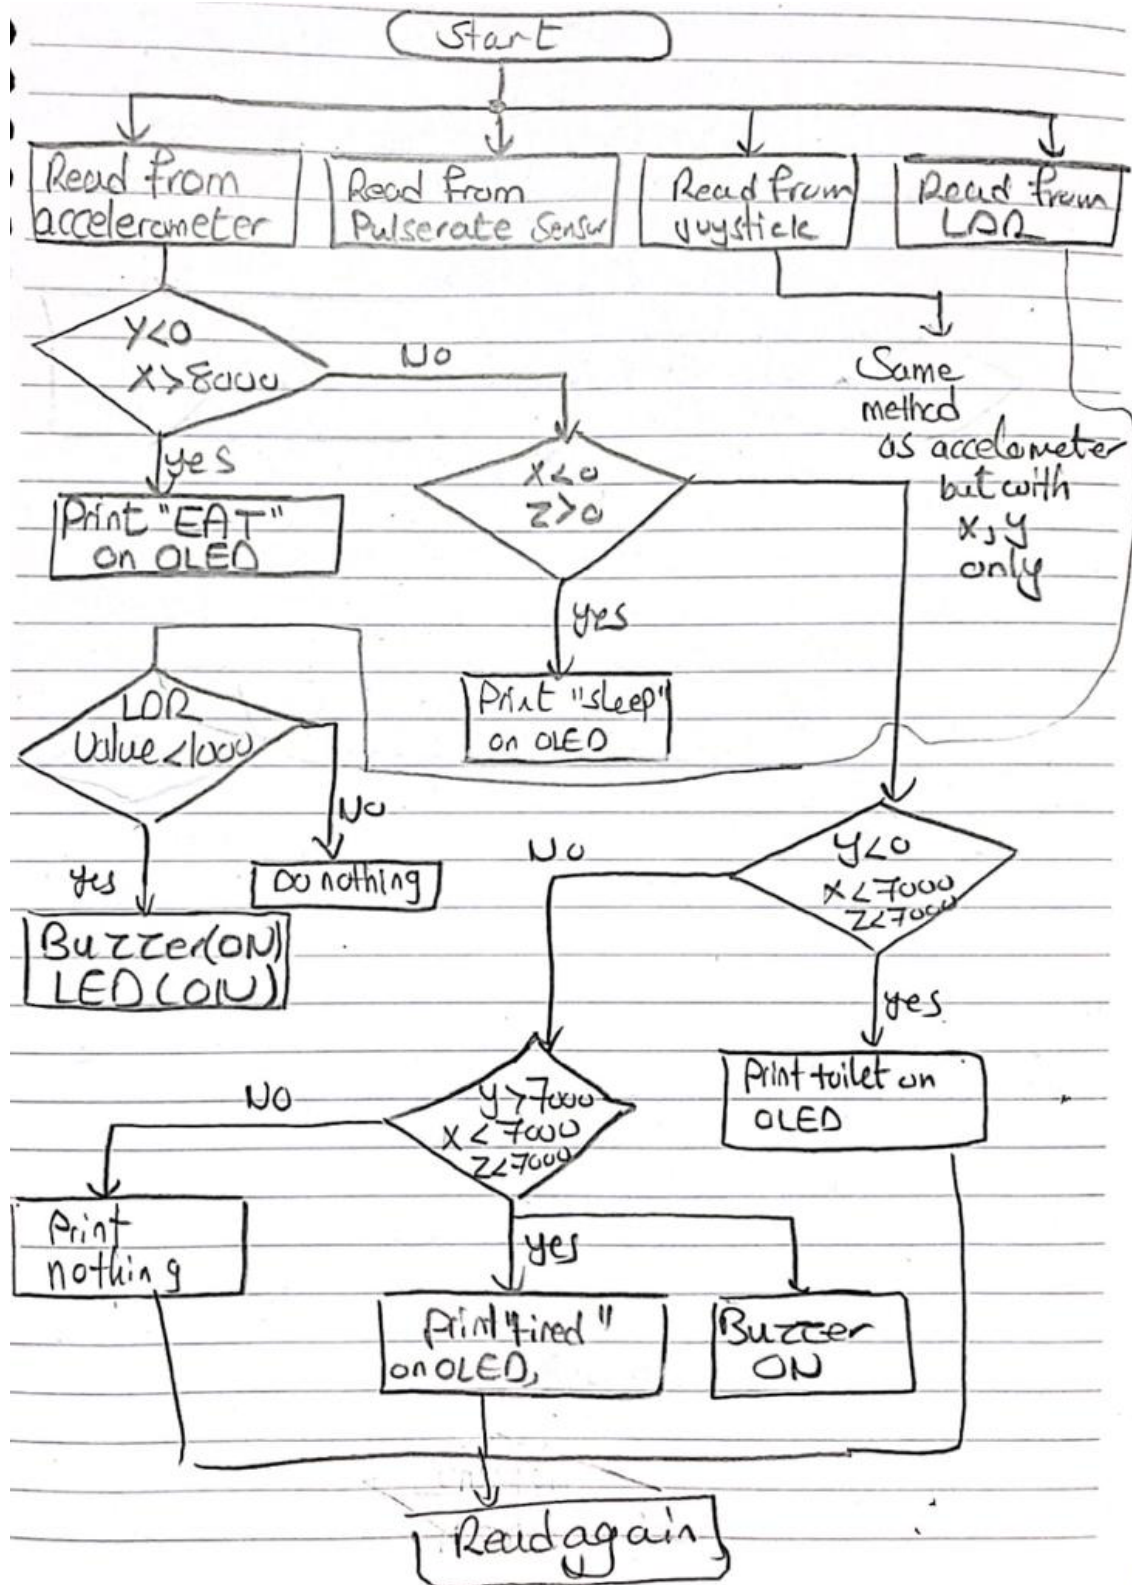 Start
Read from
accelerometer
Read from
Pulserate Sensor
Read from
joystick
Read from
LDR
y<0
x>8000
No
yes
Print "EAT"
on OLED
Same
method
as accelometer
but with
x, y
only
x<0
z>0
yes
Print "sleep"
on OLED
LDR
Value<1000
No
Do nothing
yes
Buzzer(ON)
LED(ON)
y<0
x<7000
z<7000
No
yes
Print toilet on
OLED
y>7000
x<7000
z<7000
No
Print
nothing
yes
Print "tired"
on OLED,
Buzzer
ON
Read again